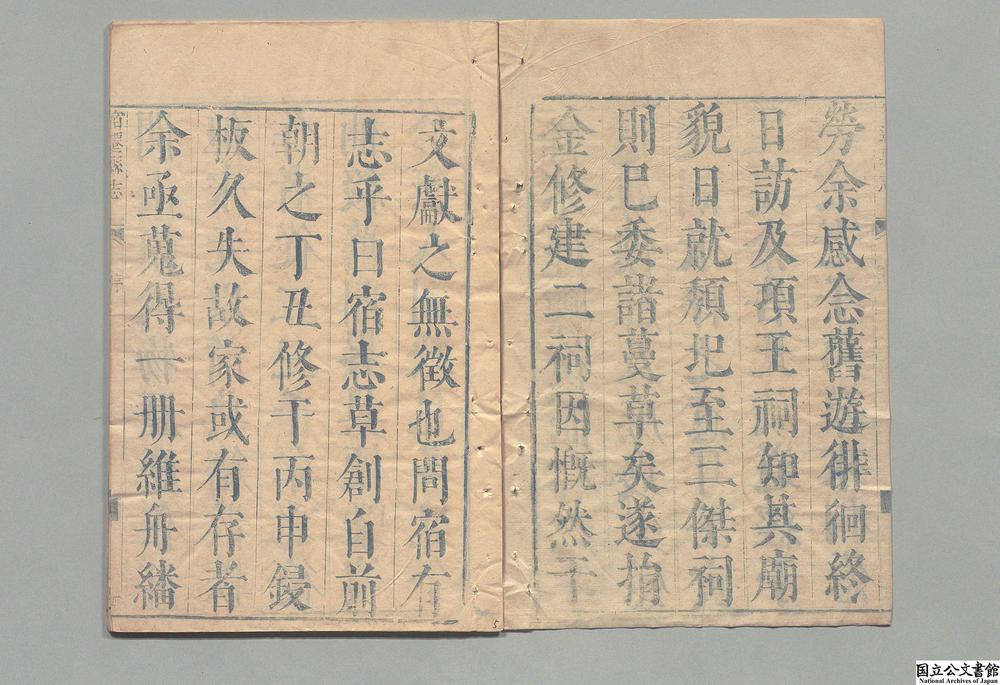 勞余感念舊遊徘徊終
日訪及項王祠知其廟
貌日就頹圯至三傑祠
則已委諸蔓草矣遂捐
金修建二祠因慨然于
文獻之無徵也問宿有
志乎曰宿志草創自前
朝之丁丑修于丙申鋟
板久失故家或有存者
余亟蒐得一冊維舟繙
宿遷縣志
5
国立公文書館
National Archives of Japan